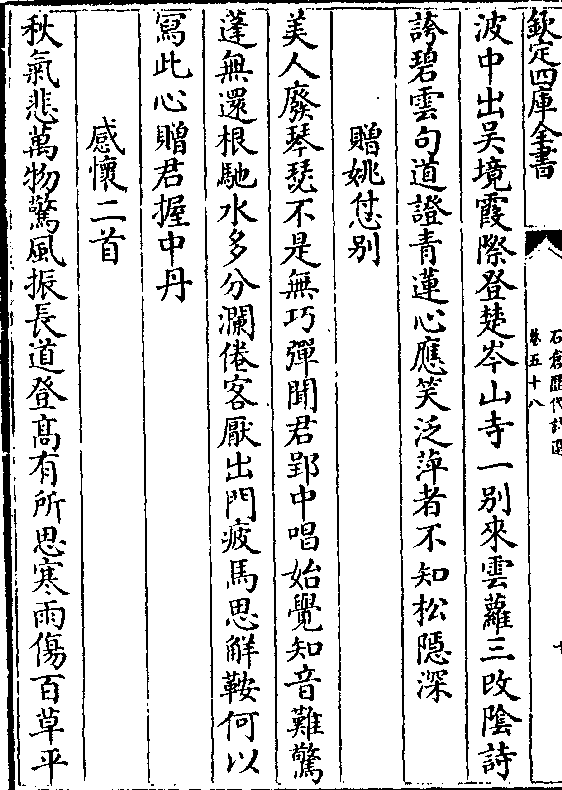 欽定四庫全書
石倉歷代詩選
卷五十八
十
波中出吴境霞際登楚岑山寺一别來雲蘿三改陰詩
誇碧雲句道證青蓮心應笑泛萍者不知松隱深
贈姚怤别
美人廢琴瑟不是無巧彈聞君郢中唱始覺知音難驚
蓬無還根馳水多分瀾倦客厭出門疲馬思解鞍何以
寫此心贈君握中丹
感懷二首
秋氣悲萬物驚風振長道登髙有所思寒雨傷百草平